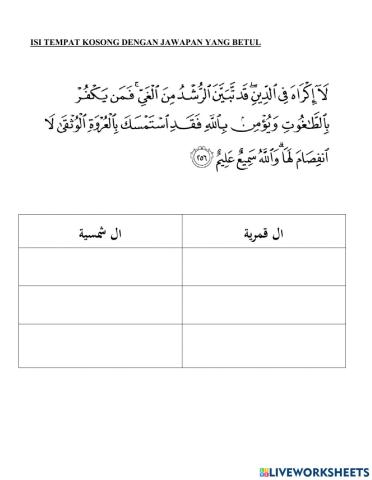 ISI TEMPAT KOSONG DENGAN JAWAPAN YANG BETUL
لَآ إِكْرَاهَ فِي ٱلدِّينِۖ قَد تَّبَيَّنَ ٱلرُّشْدُ مِنَ ٱلْغَيِّۚ فَمَن يَكْفُرْ
بِٱلطَّٰغُوتِ وَيُؤْمِنۢ بِٱللَّهِ فَقَدِ ٱسْتَمْسَكَ بِٱلْعُرْوَةِ ٱلْوُثْقَىٰ لَا
ٱنفِصَامَ لَهَاۗ وَٱللَّهُ سَمِيعٌ عَلِيمٌ ٢٥٦
ال قمرية	ال شمسية
LIVEWORKSHEETS